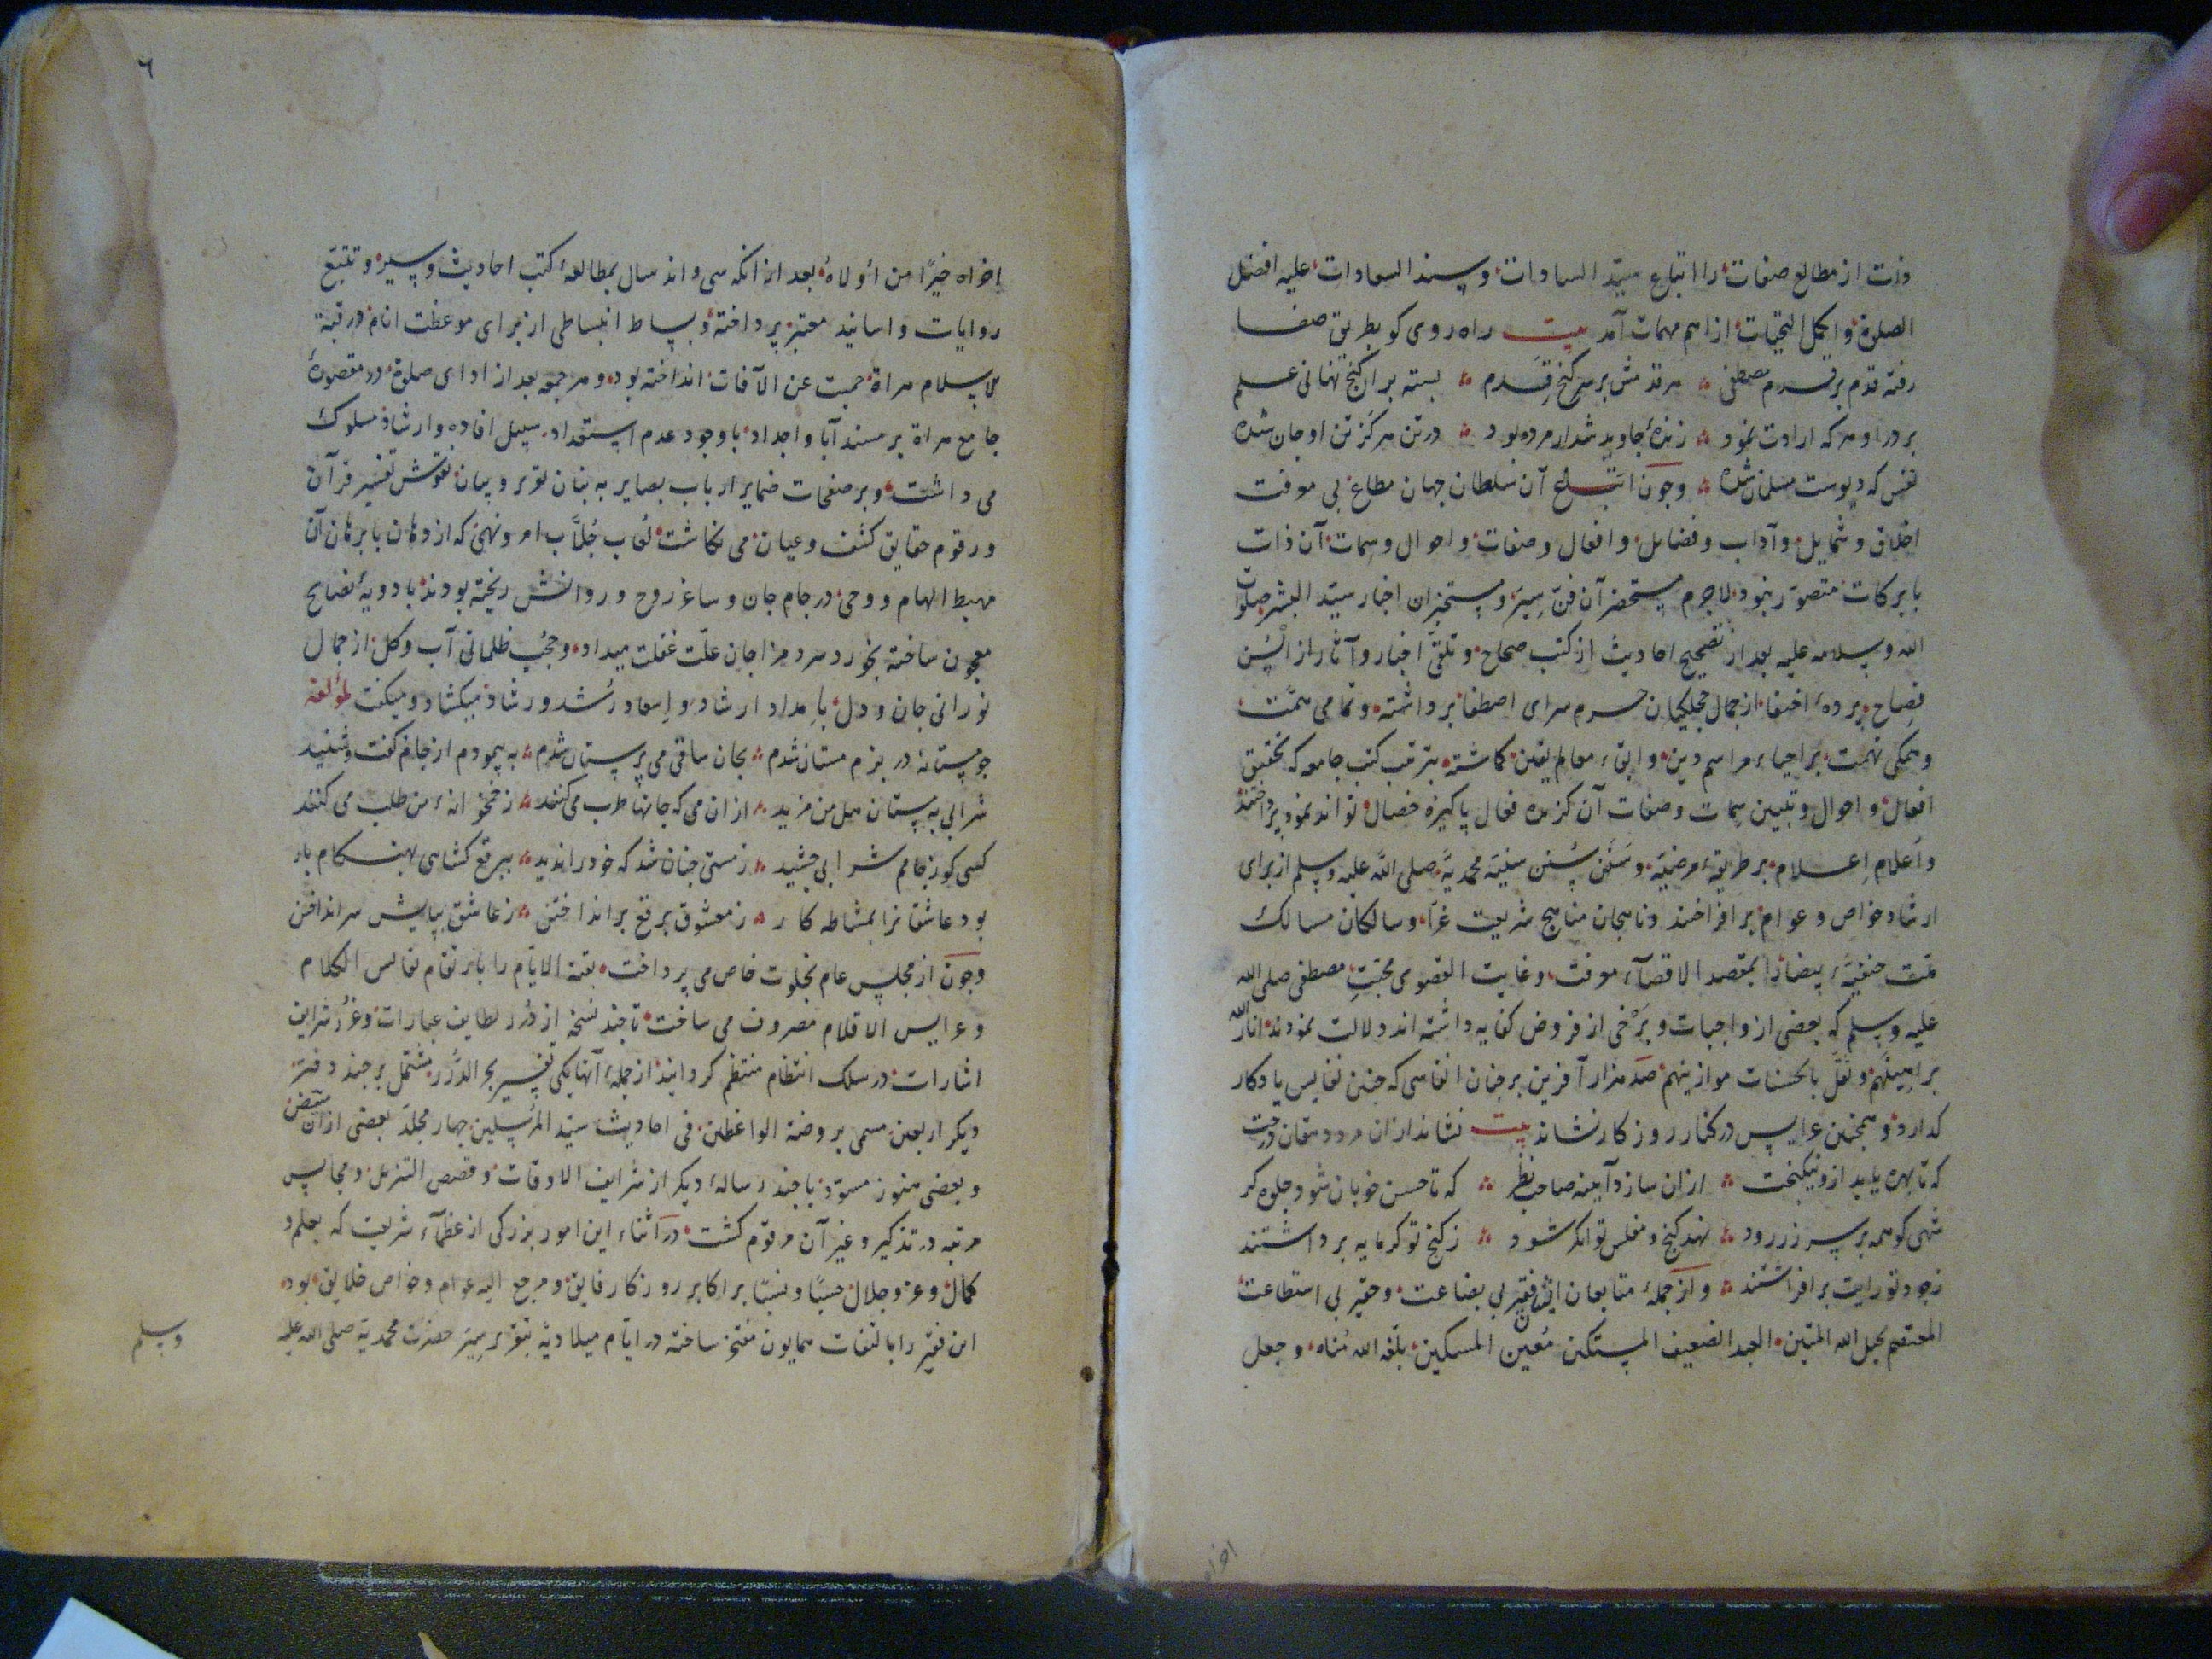 ذات از مطالع صفات را اتباع سیّد السادات و سند السعادات علیه افضل
الصلوة و اکمل التحیّات از اهم مهمات آمد بیت راه روی کو بطریق صفا
رفته قدم بر قدم مصطفی هر قدمش بر سر کنج قدم بسته بران کنج نهانی علم
بر در او هر که ارادت نمود زندهٔ جاوید شد ار مرده بود در تن هر کز تن او جان شده
نفس که دیوست مسلمان شده و چون اتباع آن سلطان جهان مطاع بی معرفت
اخلاق و شمایل و آداب و فضایل و افعال و صفات و احوال و سمات آن ذات
با برکات متصور نبود لاجرم مستحضران فن سیر و مستخبران اخبار سیّد البشر صلوات
الله و سلامه علیه بعد از تصحیح احادیث از کتب صحاح و تلقی اخبار و آثار از السن
فصاح پردهٔ اختفا از جمال حجلکیان حرم سرای اصطفا برداشته و تمامی همّت
و همکی نهمت بر احیاء مراسم دین و ابقاء معالم یقین کماشته بترتیب کتب جامعه که بتحقیق
افعال و احوال و تبیین سمات و صفات آن کزیده فعال پاکیزه خصال تواند نمود پرداختند
و اعلام اعلام بر طریقهٔ مرضیّه و سنن سنیّه محمدیّه صلی الله علیه وسلم از برای
ارشاد خواص و عوام برافراختند و ناهجان مناهج شریعت غرّا و سالکان مسالک
ملّت حنیفیّهٔ بیضا را بمقصد الاقصاء معرفت و غایت القصوی محبّت مصطفی صلی الله
علیه وسلم که بعضی از واجبات و برخی از فروض کفایه داشته اند دلالت نمودند انار الله
براهینهم و ثقل بالحسنات موازینهم صد هزار آفرین بر جنان انفاسی که چنین نفایس یادکار
کدارد و همچنین عرایس در کنار روزکار نشاند بیت نشاند ازان مرد دهقان درخت
که تا بهره یابد ازو نیکبخت ازان سازد آیینه صاحب نظر که تا حسن خوبان شود جلوه کر
شهی کو همه بر سر زر رود نهد کنج و مفلس توانکر شود ز کنج تو کر مایه برداشتند
ز جود تو رایت برافراشتند و از جملهٔ متابعان ایشان فقیر بی بضاعت و حقیر بی استطاعت
المعتصم بحبل الله المتین العبد الضعیف المستکین معین المسکین بلّغه الله مناه و جعل
اخراه
٦
اخراه خیرًا من اولاه بعد ازانکه سی و اند سال بمطالعهٔ کتب احادیث و سیر و تتبع
روایات و اسانید معتبر پرداخته و بساط انبساطی از برای موعظت انام در قبة
الاسلام هراة حمیت عن الآفات انداخته بود و هر جمعه بعد از ادای صلوة در مقصورهٔ
جامع هراة بر مسند آبا و اجداد با وجود عدم استعداد سبیل افاده و ارشاد مسلوک
می داشت و بر صفحات ضمایر ارباب بصایر به بنان تقریر و بیان نقوش تفسیر قرآن
و رقوم حقایق کشف و عیان می نکاشت لعاب جلّاب امر و نهی که از دهان با برهان آن
مهبط الهام و وحی در جام جان و ساغر روح و روانش ریخته بودند با دویهٔ نصایح
معجون ساخته بخورد مرد مزاجان علّت غفلت میداد و حجب ظلمانی آب و کل از جمال
نورانی جان و دل بامداد ارشاد و اسعاد رشد و رشاد میکشاد و میکفت لمؤلفه
چو مستانه در بزم مستان شدم بجان ساقی می پرستان شدم به پیمودم از جام کفت و شنید
شرابی به مستان هل من مزید ازان می که جانها طرب می کنند ز خمخانهٔ من طلب می کنند
کسی کو ز جامم شرابی چشید ز مستی چنان شد که خود را ندید ببرقع کشایی بهنکام بار
بود عاشقانرا بمشاطه کار ز معشوق برقع برانداختن ز عاشق بپایش سر انداختن
و چون از مجلس عام بخلوت خاص می پرداخت بقیة الایّام را بارتقام نفایس الکلام
و عرایس الاقلام مصروف می ساخت تا چند نسخه از درر لطایف عبارات و غرر شرایف
اشارات در سلک انتظام منتظم کردانید از جملهٔ آنها یکی تفسیر بحر الدرر مشتمل بر چند دفتر
دیکر اربعین مسمی بروضة الواعظین فی احادیث سیّد المرسلین چهار مجلّد بعضی ازان مبیّض
و بعضی هنوز مسوّد با چند رسالهٔ دیکر از شرایف الاوقات و قصص التنزیل و مجالس
مرتبه در تذکیر و غیر آن مرقوم کشت در اثناء این امور بزرکی از عظماء شریعت که بعلم و
کمال و عز و جلال حسبًا و نسبًا بر اکابر روزکار فایق و مرجع الیه عوام و خواص خلایق بود
این فقیر را بالتفات همایون مفتخر ساخته در ایّام میلادیّه بتقریر سیر حضرت محمدیّه صلی الله علیه
وسلم